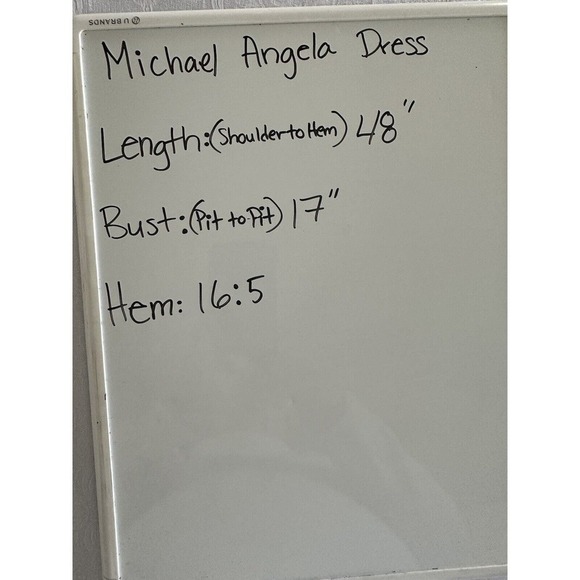 U BRANDS
Michael Angela Dress
Length:(Shoulder to Hem) 48"
Bust:(Pit to Pit) 17"
Hem: 16:5